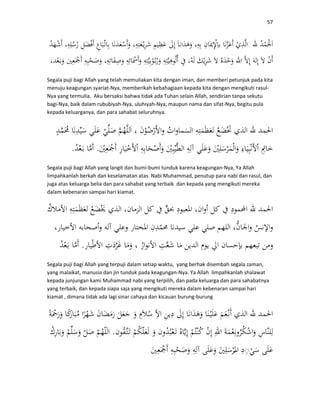 57
الْحَمْدُ لِلهِ الَّذِيْ أَعَزَّنَا بِالْإِيْمَانِ بِهِ، وَهَدَانَا إِلَى عَظِيْمِ شَرِيْعَتِهِ، وَأَسْعَدَنَا بِاتِّبَاعِ أَفْضَلِ رُسُلِهِ، أَشْهَدُ
أَنْ لَا إِلَهَ إِلَّا اللهُ وَحْدَهُ لَا شَرِيْكَ لَهُ، فِي أُلُوهِيَّتِهِ وَرُبُوْبِيَّتِهِ وَأَسْمَائِهِ وَصِفَاتِهِ، وَصَحْبِهِ أَجْمَعِيْنَ، وَبَعْدُ،
Segala puji bagi Allah yang telah memuliakan kita dengan iman, dan memberi petunjuk pada kita
menuju keagungan syariat-Nya, memberikah kebahagiaan kepada kita dengan mengikuti rasul-
Nya yang termulia.  Aku bersaksi bahwa tidak ada Tuhan selain Allah, sendirian tanpa sekutu
bagi-Nya, baik dalam rububiyah-Nya, uluhiyah-Nya, maupun nama dan sifat-Nya, begitu pula
kepada keluarganya, dan para sahabat seluruhnya.
الحمد لله الذي تَخْضَعُ لِعَظَمَتِهِ السماواتُ وَالْأَرْضُوْنَ ، اللَّهُمَّ صَلِّيْ عَلَي سَيِّدِنَا مُحَمَّدٍ
خَاتِمِ الْأَنْبِيَاءِ وَالْمُرْسَلِيْنَ وَعَلَي آلِهِ الطَّيِّبِيْنَ وَأَصْحَابِهِ الْأَخْيَارِ أَجْمَعِيْنَ. أَمَّا بَعْدُ.
Segala puji bagi Allah yang langit dan bumi-bumi tunduk karena keagungan-Nya, Ya Allah
limpahkanlah berkah dan keselamatan atas  Nabi Muhammad, penutup para nabi dan rasul, dan
juga atas keluarga belia dan para sahabat yang terbaik  dan kepada yang mengikuti mereka
dalam kebenaran sampai hari kiamat.
الحمد لله المحمودِ في كل أوان، المعبودِ بحقٍّ في كل الزمان، الذي يَخْضَعُ لِعَظَمَتِهِ الأملاكُ
والإنسُ والجَانُّ، اللهم صلي علي سيدنا محمدٍ المختار وعلي آله وأصحابه الأخيار،
ومن تبعهم بإحسان الي يوم الدين ما شَعَّتِ الأنوارُ ، وَمَا غَرَّدَتِ الأَطْيار. أَمَّا بَعْدُ
Segala puji bagi Allah yang terpuji dalam setiap waktu,  yang berhak disembah segala zaman,
yang malaikat, manusia dan jin tunduk pada keagungan-Nya. Ya Allah  limpahkanlah shalawat
kepada junjungan kami Muhammad nabi yang terpilih, dan pada keluarga dan para sahabatnya
yang terbaik, dan kepada siapa saja yang mengikuti mereka dalam kebenaran sampai hari
kiamat , dimana tidak ada lagi sinar cahaya dan kicauan burung-burung
الحمد لله الذي أَنْعَمَ عَلَيْنَا وَهَدَانَا إِلَى دِينِ الْإِ سْلَامِ وَ جَعَلَ رَمَضَانَ شَهْرًا مُبَارَكًا وَرَحْمَةً
لِلنَّاسِ وَاشْكُرُوْنِعْمَةَ اللهِ إِنْ كُنْتُمْ إِيَّاهُ تَعْبُدُونَ وَ لَعَلَّكُمْ تَتَّقُونَ. اللَّهُمَّ صَلِّ وَسَلِّمْ وَبَارِكْ
عَلَى سَيِّدِ الْمُرْسَلِيْنَ وَعَلَى آلِهِ وَصَحْبِهِ أَجْمَعِيْنَ